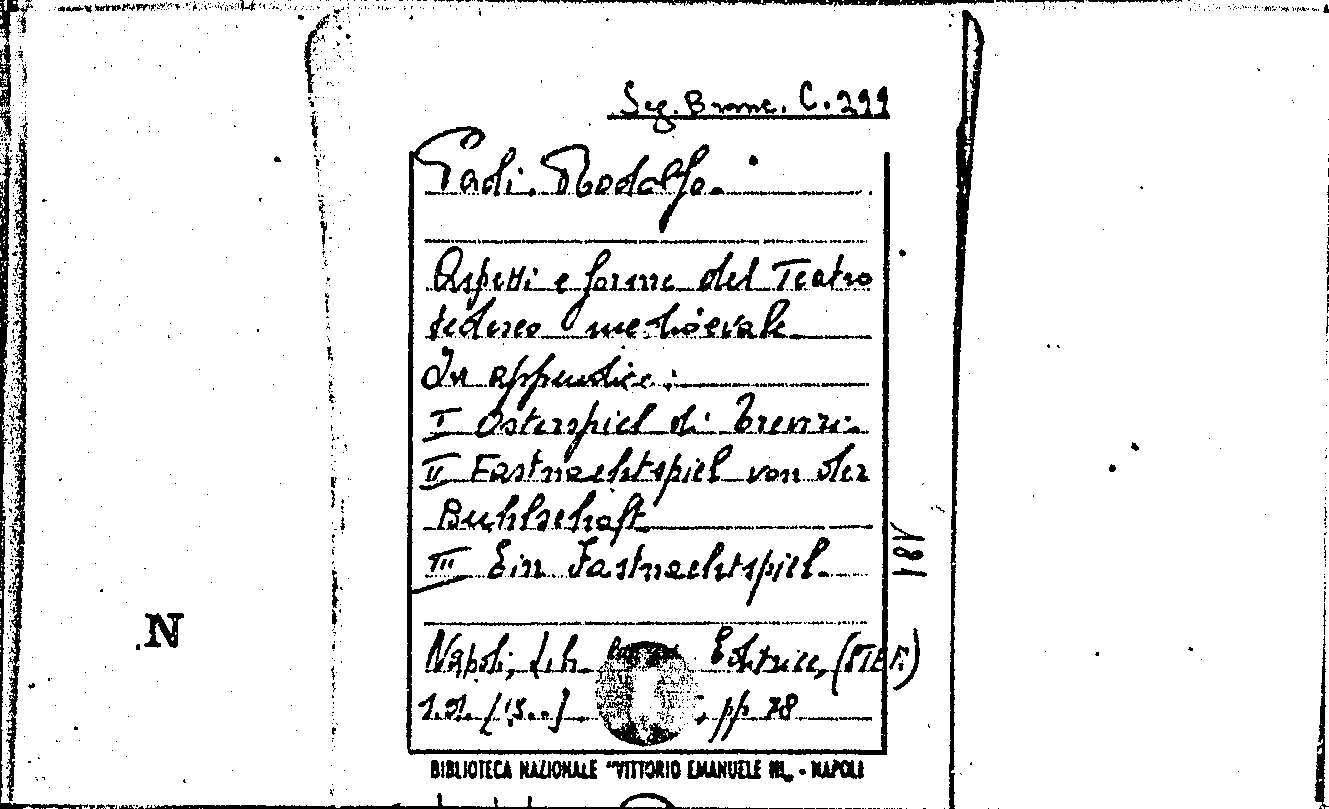 Seg. Branc. C. 299
Padi. Rodolfo.
Aspetti e forme del Teatro
tedesco medioevale
In appendice:
I Osterspiel di
II Fastnachtspiel von der
Buhlschaft
III Ein Fastnachtspiel.
181
N
Napoli, Lib. Editrice, (STEF.)
s.d. [19..] , pp 78
BIBLIOTECA NAZIONALE "VITTORIO EMANUELE III„ - NAPOLI